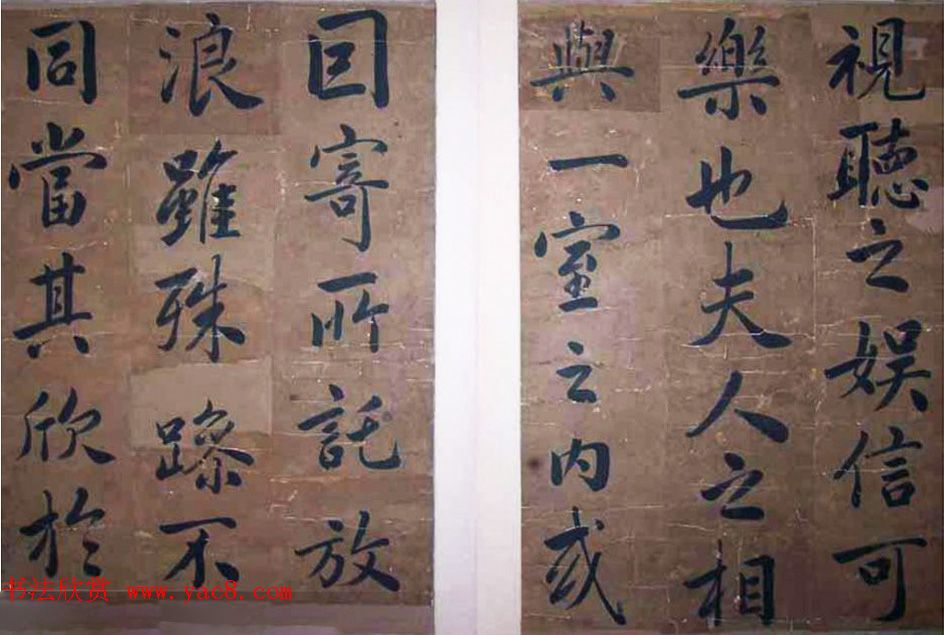 視聽之娛信可
樂也夫人之相
與一室之內或
囙寄所託放
浪雖殊躁不
同當其欣於
书法欣赏 www.yac8.com